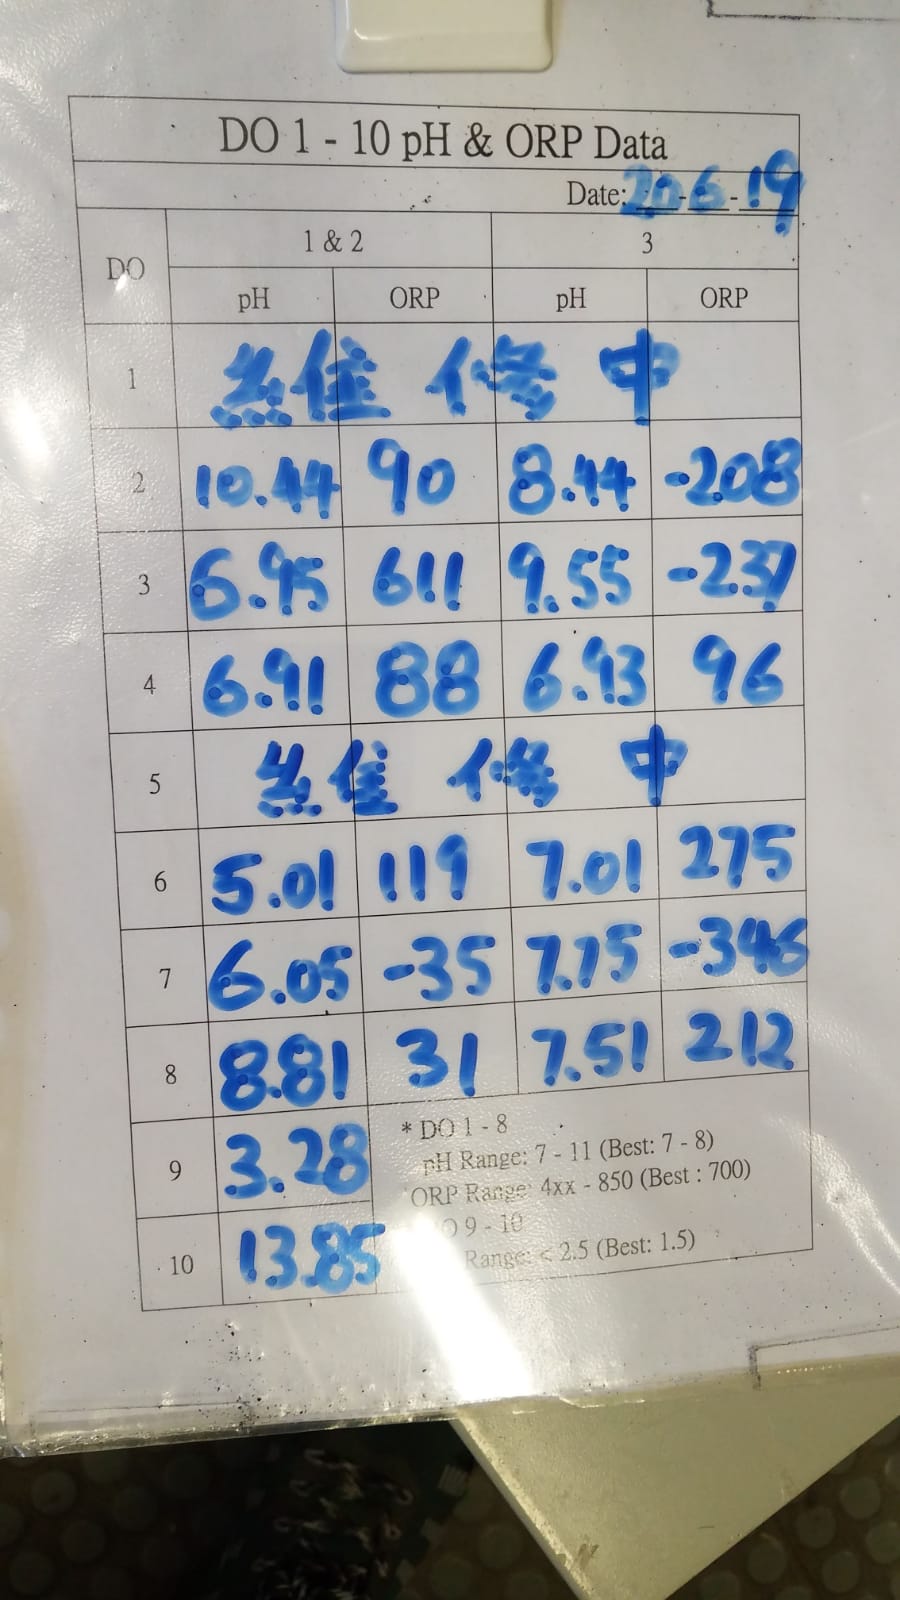 DO 1 - 10 pH & ORP Data
Date: 20-6-19
DO 1 & 2 3
pH ORP pH ORP
1 维修中
2 10.44 90 8.44 -208
3 6.95 611 9.55 -237
4 6.91 88 6.93 96
5 修中
6 5.01 119 7.01 275
7 6.05 -35 7.75 -346
8 8.81 31 7.51 212
9 3.28
10 13.85
* DO 1 - 8
pH Range: 7 - 11 (Best: 7 - 8)
ORP Range: 4xx - 850 (Best : 700)
9 - 10
Range: < 2.5 (Best: 1.5)